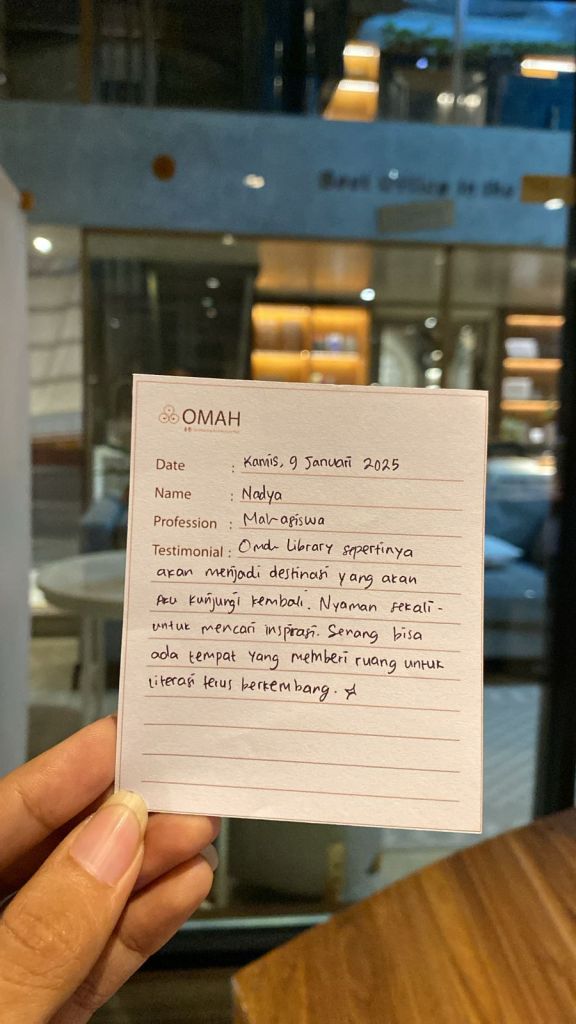 OMAH
Date : Kamis, 9 Januari 2025
Name : Nadya
Profession : Mahasiswa
Testimonial : Omah Library sepertinya
akan menjadi destinasi yang akan
Aku kunjungi kembali. Nyaman sekali-
untuk mencari inspirasi. Senang bisa
ada tempat yang memberi ruang untuk
literasi terus berkembang. ☆
Best Office in the